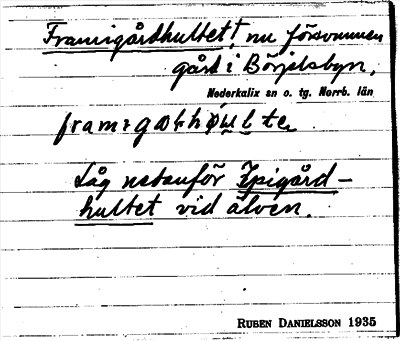 Framigårdhultet! nu försvunnen
gård i Börjelsbyn,
Nederkalix sn o. tg. Norrb. län
Låg nedanför Ipigård-
hultet vid älven.
RUBEN DANIELSSON 1935